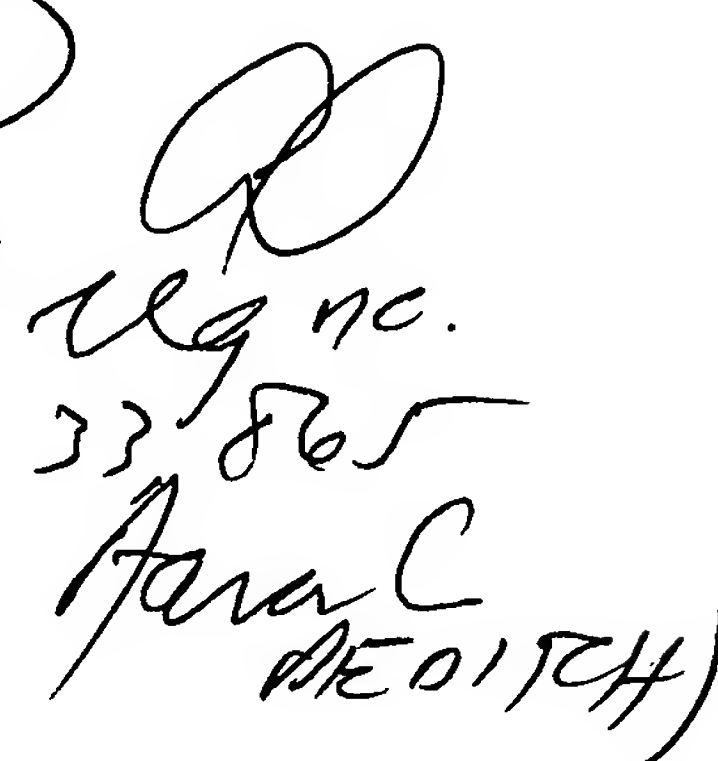 reg no.
33,865
Aaron C
DEDITCH)